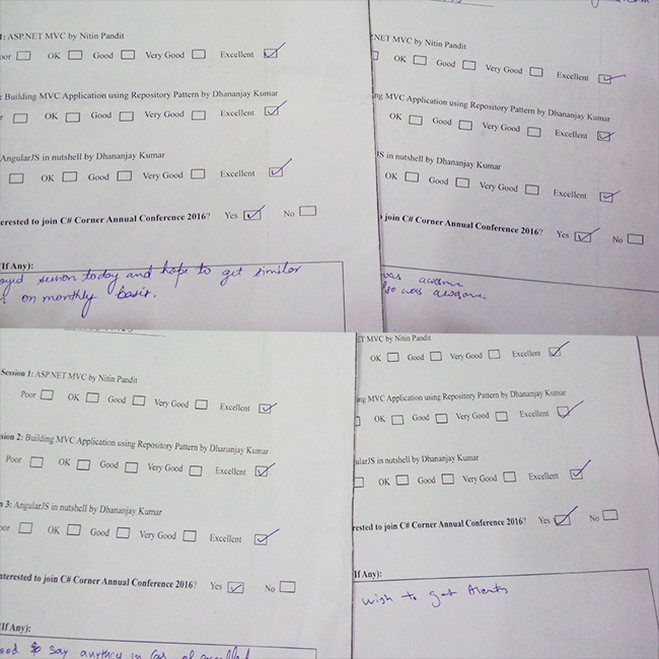 1: ASP.NET MVC by Nitin Pandit
oor OK Good Very Good Excellent
: Building MVC Application using Repository Pattern by Dhananjay Kumar
r OK Good Very Good Excellent
AngularJS in nutshell by Dhananjay Kumar
OK Good Very Good Excellent
erested to join C# Corner Annual Conference 2016? Yes No
(If Any):
oyed session today and hope to get similar
on monthly basis.
.NET MVC by Nitin Pandit
OK Good Very Good Excellent
ng MVC Application using Repository Pattern by Dhananjay Kumar
OK Good Very Good Excellent
JS in nutshell by Dhananjay Kumar
OK Good Very Good Excellent
join C# Corner Annual Conference 2016? Yes No
was awesome
lso was awesome.
Session 1: ASP.NET MVC by Nitin Pandit
Poor OK Good Very Good Excellent
sion 2: Building MVC Application using Repository Pattern by Dhananjay Kumar
Poor OK Good Very Good Excellent
n 3: AngularJS in nutshell by Dhananjay Kumar
oor OK Good Very Good Excellent
nterested to join C# Corner Annual Conference 2016? Yes No
(If Any):
ood to say anything in
ET MVC by Nitin Pandit
OK Good Very Good Excellent
ing MVC Application using Repository Pattern by Dhananjay Kumar
OK Good Very Good Excellent
ularJS in nutshell by Dhananjay Kumar
OK Good Very Good Excellent
rested to join C# Corner Annual Conference 2016? Yes No
If Any):
wish to get Alerts